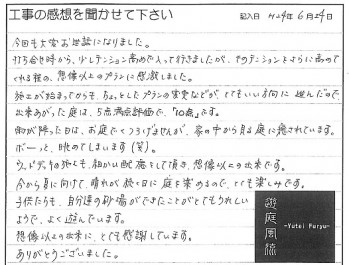 工事の感想を聞かせて下さい
記入日 H24年6月24日
今回も大変お世話になりました。
打ち合せ時から、少しテンション高めで入って行きましたが、そのテンションをさらに高めて
くれる程の、想像以上のプランに感激しました。
施工が始まってからも、ちょっとしたプランの変更などが、とてもいい方向に進んだので、
出来あがった庭は、5点満点評価で、"10点"です。
雨が降った日は、お庭でくつろげませんが、家の中から見る庭に癒されています。
ボーっと、眺めてしまいます(笑)。
ウッドデッキの施工も、細かい配慮をして頂き、想像以上の出来です。
今から夏に向けて、晴れが続く日に庭を楽めるので、とても楽しみです。
子供たちも、自分達の砂場ができたことがとてもうれしい
ようで、よく遊んでいます。
想像以上の出来に、とても感謝しています。
ありがとうございました。
遊庭風流
-Yutei Furyu-